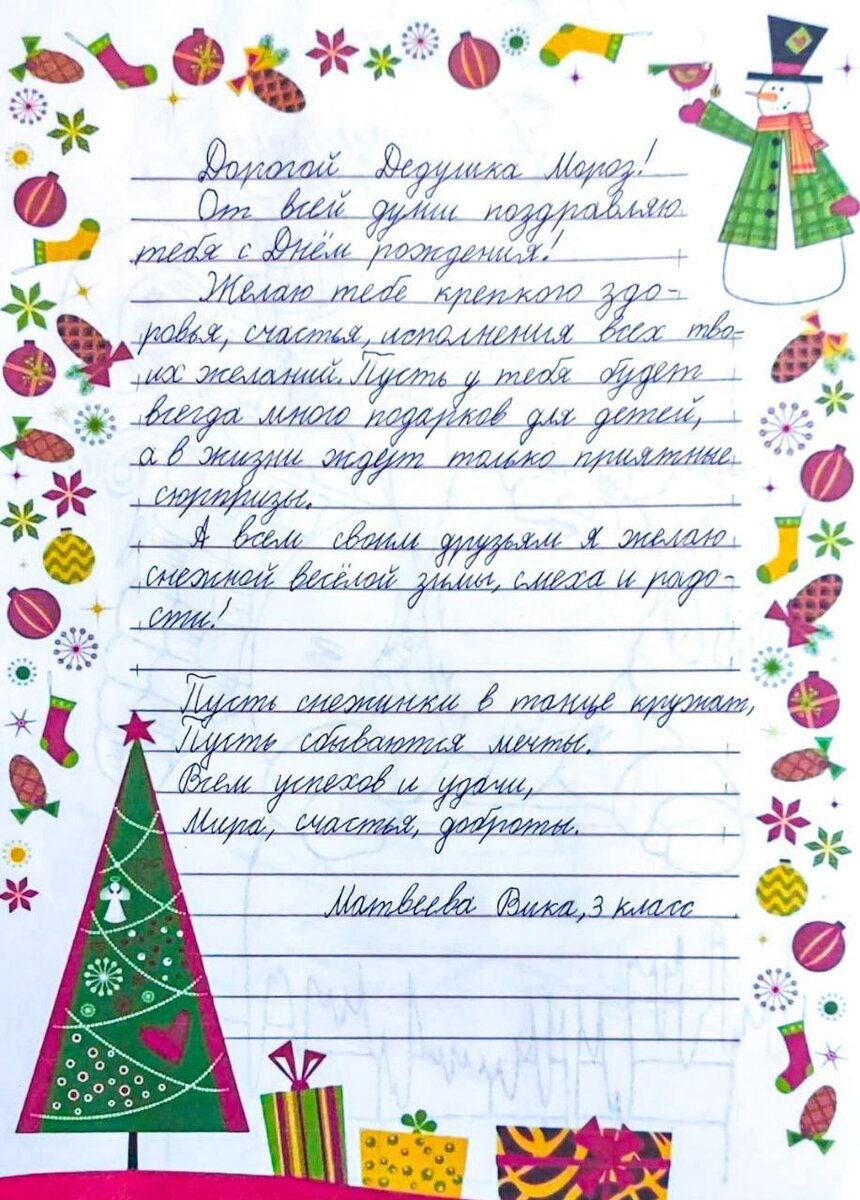 Дорогой Дедушка Мороз!
От всей души поздравляю
тебя с Днём рождения!
Желаю тебе крепкого здо-
ровья, счастья, исполнения всех тво-
их желаний. Пусть у тебя будет
всегда много подарков для детей,
а в жизни ждут только приятные
сюрпризы.
А всем своим друзьям я желаю
снежной весёлой зимы, смеха и радо-
сти!
Пусть снежинки в танце кружат,
Пусть сбываются мечты.
Всем успехов и удачи,
Мира, счастья, доброты.
Матвеева Вика, 3 класс